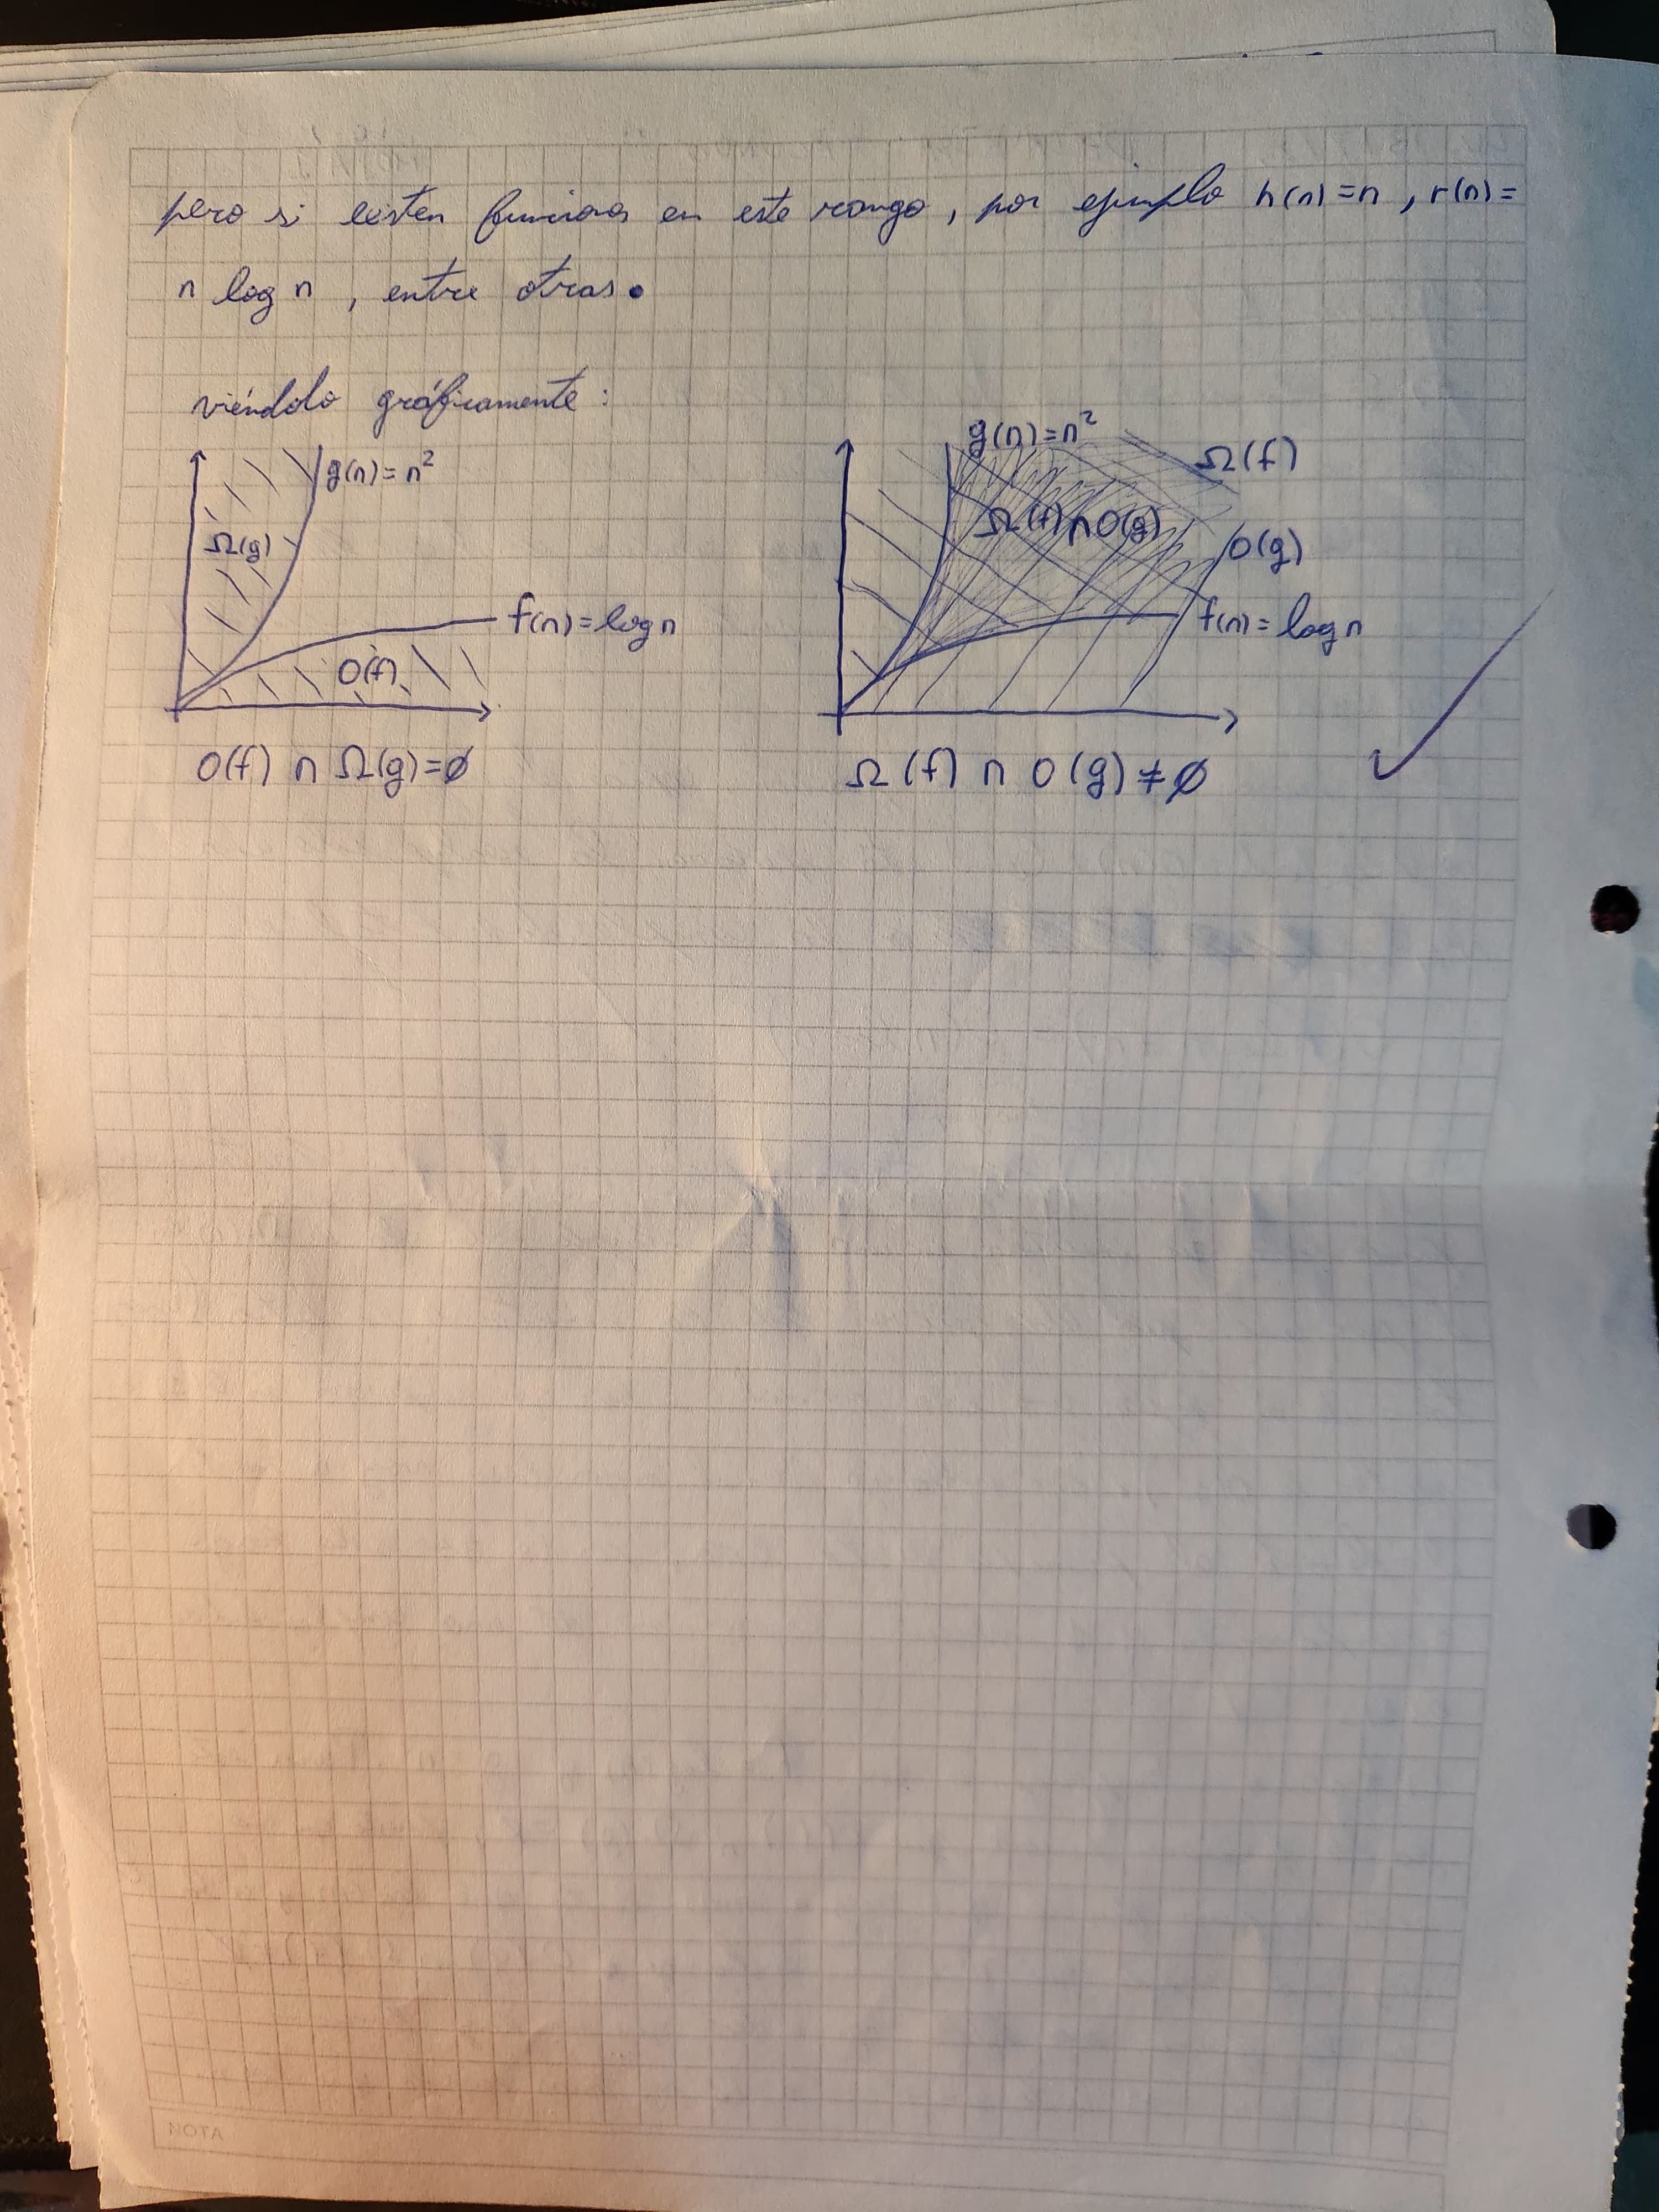 pero si existen funciones en este rango, por ejemplo h(n)=n, r(n)=
n log n, entre otras.
viéndolo gráficamente:
g(n)=n²
Ω(g)
f(n)=log n
O(f)
O(f) ∩ Ω(g)=∅
g(n)=n²
Ω(f)
Ω(f)∩O(g)
O(g)
f(n)=log n
Ω(f) ∩ O(g) ≠ ∅